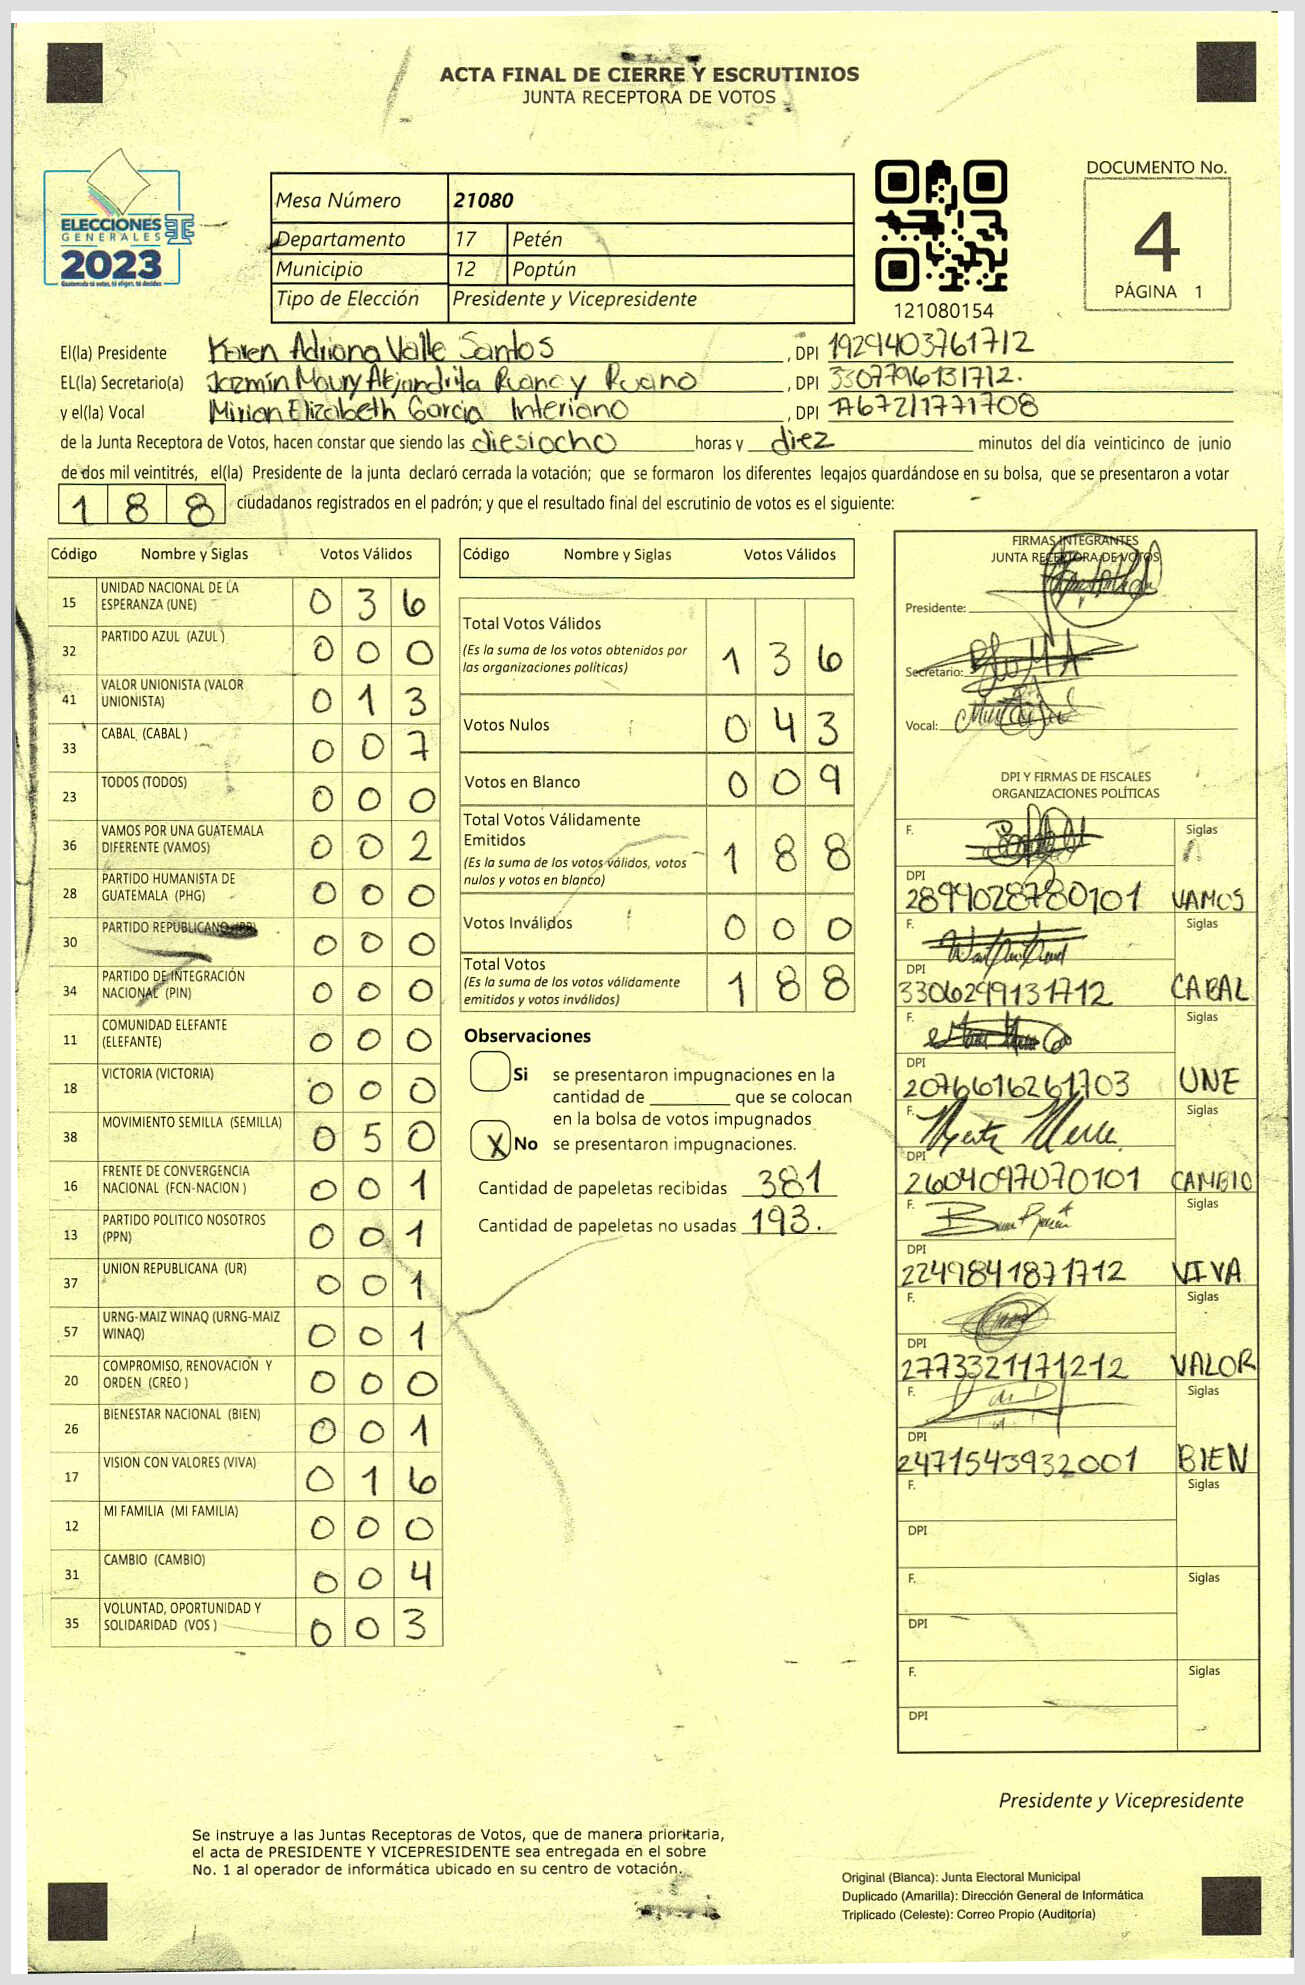 ACTA FINAL DE CIERRE Y ESCRUTINIOS
JUNTA RECEPTORA DE VOTOS
ELECCIONES
GENERALES
2023
Guatemala tú votas, tú eliges, tú decides
Mesa Número 21080
Departamento 17 Petén
Municipio 12 Poptún
Tipo de Elección Presidente y Vicepresidente
121080154
DOCUMENTO No.
4
PÁGINA 1
El(la) Presidente Karen Adriana Valle Santos , DPI 1929403761712
EL(la) Secretario(a) Jazmín Maury Alejandrita Ruano y Ruano , DPI 3307796131712.
y el(la) Vocal Mirian Elizabeth Garcia Interiano , DPI 1771708
de la Junta Receptora de Votos, hacen constar que siendo las diesiocho horas y diez minutos del día veinticinco de junio
de dos mil veintitrés, el(la) Presidente de la junta declaró cerrada la votación; que se formaron los diferentes legajos guardándose en su bolsa, que se presentaron a votar
188 ciudadanos registrados en el padrón; y que el resultado final del escrutinio de votos es el siguiente:
Código Nombre y Siglas Votos Válidos
15 UNIDAD NACIONAL DE LA ESPERANZA (UNE) 0 3 6
32 PARTIDO AZUL (AZUL ) 0 0 0
41 VALOR UNIONISTA (VALOR UNIONISTA) 0 1 3
33 CABAL (CABAL ) 0 0 7
23 TODOS (TODOS) 0 0 0
36 VAMOS POR UNA GUATEMALA DIFERENTE (VAMOS) 0 0 2
28 PARTIDO HUMANISTA DE GUATEMALA (PHG) 0 0 0
30 PARTIDO REPUBLICANO (PR) 0 0 0
34 PARTIDO DE INTEGRACIÓN NACIONAL (PIN) 0 0 0
11 COMUNIDAD ELEFANTE (ELEFANTE) 0 0 0
18 VICTORIA (VICTORIA) 0 0 0
38 MOVIMIENTO SEMILLA (SEMILLA) 0 5 0
16 FRENTE DE CONVERGENCIA NACIONAL (FCN-NACION ) 0 0 1
13 PARTIDO POLITICO NOSOTROS (PPN) 0 0 1
37 UNION REPUBLICANA (UR) 0 0 1
57 URNG-MAIZ WINAQ (URNG-MAIZ WINAQ) 0 0 1
20 COMPROMISO, RENOVACIÓN Y ORDEN (CREO ) 0 0 0
26 BIENESTAR NACIONAL (BIEN) 0 0 1
17 VISION CON VALORES (VIVA) 0 1 6
12 MI FAMILIA (MI FAMILIA) 0 0 0
31 CAMBIO (CAMBIO) 0 0 4
35 VOLUNTAD, OPORTUNIDAD Y SOLIDARIDAD (VOS ) 0 0 3
Código Nombre y Siglas Votos Válidos
Total Votos Válidos
(Es la suma de los votos obtenidos por las organizaciones políticas) 1 3 6
Votos Nulos 0 4 3
Votos en Blanco 0 0 9
Total Votos Válidamente Emitidos
(Es la suma de los votos válidos, votos nulos y votos en blanco) 1 8 8
Votos Inválidos 0 0 0
Total Votos
(Es la suma de los votos válidamente emitidos y votos inválidos) 1 8 8
Observaciones
Si se presentaron impugnaciones en la
cantidad de ________ que se colocan
en la bolsa de votos impugnados
X No se presentaron impugnaciones.
Cantidad de papeletas recibidas 381
Cantidad de papeletas no usadas 193.
FIRMAS INTEGRANTES
JUNTA RECEPTORA DE VOTOS
Presidente:
Secretario:
Vocal:
DPI Y FIRMAS DE FISCALES
ORGANIZACIONES POLÍTICAS
F. Siglas
DPI
2899028780101 VAMOS
F. Siglas
DPI
3306299131712 CABAL
F. Siglas
DPI
2076616261703 UNE
F. Siglas
DPI
2604097070101 CAMBIO
F. Siglas
DPI
2249841871712 VIVA
F. Siglas
DPI
2773321171212 VALOR
F. Siglas
DPI
2471543932001 BIEN
F. Siglas
DPI
F. Siglas
DPI
F. Siglas
DPI
Presidente y Vicepresidente
Se instruye a las Juntas Receptoras de Votos, que de manera prioritaria,
el acta de PRESIDENTE Y VICEPRESIDENTE sea entregada en el sobre
No. 1 al operador de informática ubicado en su centro de votación.
Original (Blanca): Junta Electoral Municipal
Duplicado (Amarilla): Dirección General de Informática
Triplicado (Celeste): Correo Propio (Auditoría)